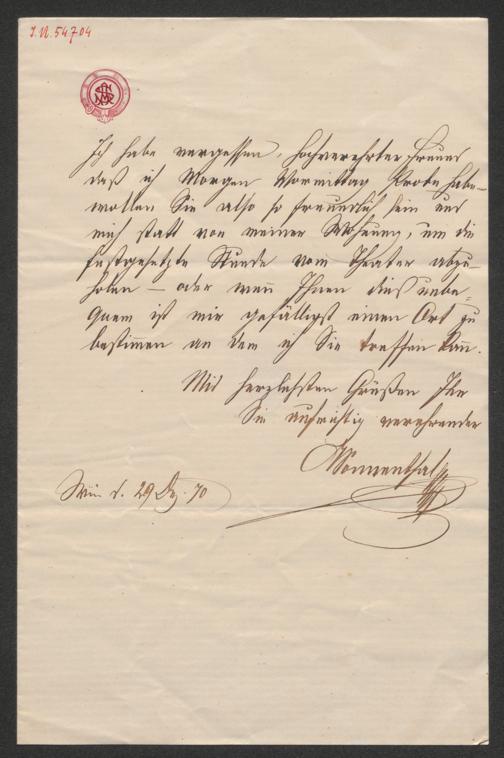 I.N. 54.704
Ich habe vergessen, hochverehrter Freund
daß ich Morgen Vormittag Probe habe –
wollen Sie also so freundlich sein und
mich statt von meiner Wohnung, um die
festgesetzte Stunde vom Theater abzu-
holen – oder wenn Ihnen dieß unbe-
quem ist mir gefälligst einen Ort zu
bestimmen an dem ich Sie treffen kann.
Mit herzlichsten Grüßen Ihr
Sie aufrichtig verehrender
Sonnenthal
Wien d. 29 Dez. 70